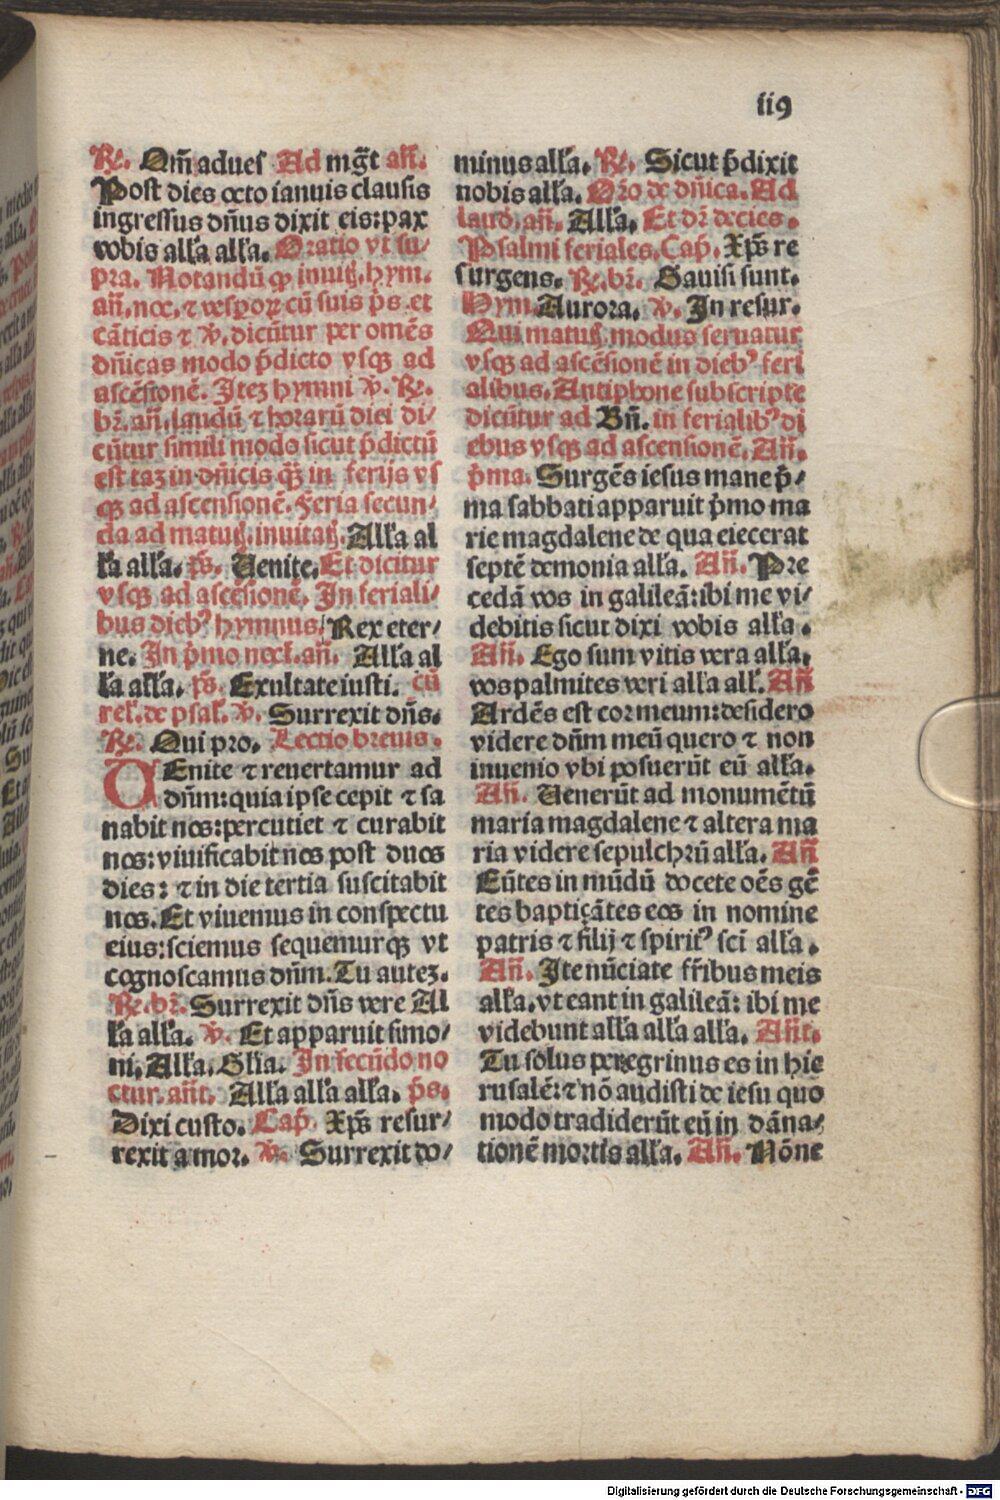 119
℟. Om̄ aduel Ad mg̅t an̄.
Post dies octo ianuis clausis
ingressus dn̄us dixit eis:pax
vobis all'a all'a. Oratio vt su/
pra. Notandū ꝙ inuitꝭ.hym.
an̄. noc. ⁊ vesꝑoꝝ cū suis p̄s et
cāticis ⁊ ℣. dicūtur per omēs
dn̄icas modo p̄dicto vsqꝫ ad
ascēsionē. Iteꝫ hymni ℣. ℟.
br̄. an̄. laudū ⁊ horarū diei di/
cūtur simili modo sicut p̄dictū
est taꝫ in dn̄icis qꝫ̄ in ferijs vs
qꝫ ad ascensionē. Feria secun/
da ad matutꝭ. inuitatꝭ. All'a al
l'a all'a. ps̄. Uenite. Et dicitur
vsqꝫ ad ascēsionē. In feriali/
bus diebꝰ hymnus. Rex eter/
ne. In p̄mo noct. an̄. All'a al
l'a all'a. ps̄. Exultate iusti. cū
rel'. de psal'. ℣. Surrexit dn̄s.
℟. Qui pro. Lectio breuis.
UEnite ⁊ reuertamur ad
dn̄m:quia ipse cepit ⁊ sa
nabit nos:percutiet ⁊ curabit
nos:viuificabit nos post duos
dies: ⁊ in die tertia suscitabit
nos. Et viuemus in conspectu
eius:sciemus sequemurqꝫ vt
cognoscamus dn̄m. Tu auteꝫ.
℟. br̄. Surrexit dn̄s vere Al
l'a all'a. ℣. Et apparuit simo/
ni. All'a. Gl'ia. In secūdo no
ctur. an̄t. All'a all'a all'a. p̄s.
Dixi custo. Cap̄. Xp̄s resur/
rexit a mor. ℣. Surrexit do/
minus all'a. ℟. Sicut p̄dixit
nobis all'a. Or̄o de dn̄ica. Ad
laud. an̄. All'a. Et dr̄ decies.
Psalmi feriales. Cap̄. Xp̄s re
surgens. ℟. br̄. Gauisi sunt.
Hym. Aurora. ℣. In resur.
Qui matutꝭ. modus seruatur
vsqꝫ ad ascēsionē in diebꝰ feri
alibus. Antiphone subscripte
dicūtur ad Bn̄. in ferialibꝰ di
ebus vsqꝫ ad ascensionē. An̄.
p̄ma. Surgēs iesus mane p̄/
ma sabbati apparuit p̄mo ma
rie magdalene de qua eiecerat
septē demonia all'a. An̄. Pre
cedā vos in galileā:ibi me vi/
debitis sicut dixi vobis all'a.
An̄. Ego sum vitis vera all'a,
vos palmites veri all'a all'. An̄
Ardēs est cor meum:desidero
videre dn̄m meū quero ⁊ non
inuenio vbi posuerūt eū all'a.
An̄. Uenerūt ad monumētū
maria magdalene ⁊ altera ma
ria videre sepulchrū all'a. An̄
Eūtes in mūdū docete oēs gē
tes baptiçātes eos in nomine
patris ⁊ filij ⁊ spiritꝰ sc̄i all'a.
An̄. Ite nūciate fr̄ibus meis
all'a. vt eant in galileā: ibi me
videbunt all'a all'a all'a. An̄t.
Tu solus peregrinus es in hie
rusalē:⁊ nō audisti de iesu quo
modo tradiderūt eū in dāna/
tionē mortis all'a. An̄. Nōne
Digitalisierung gefördert durch die Deutsche Forschungsgemeinschaft - DFG